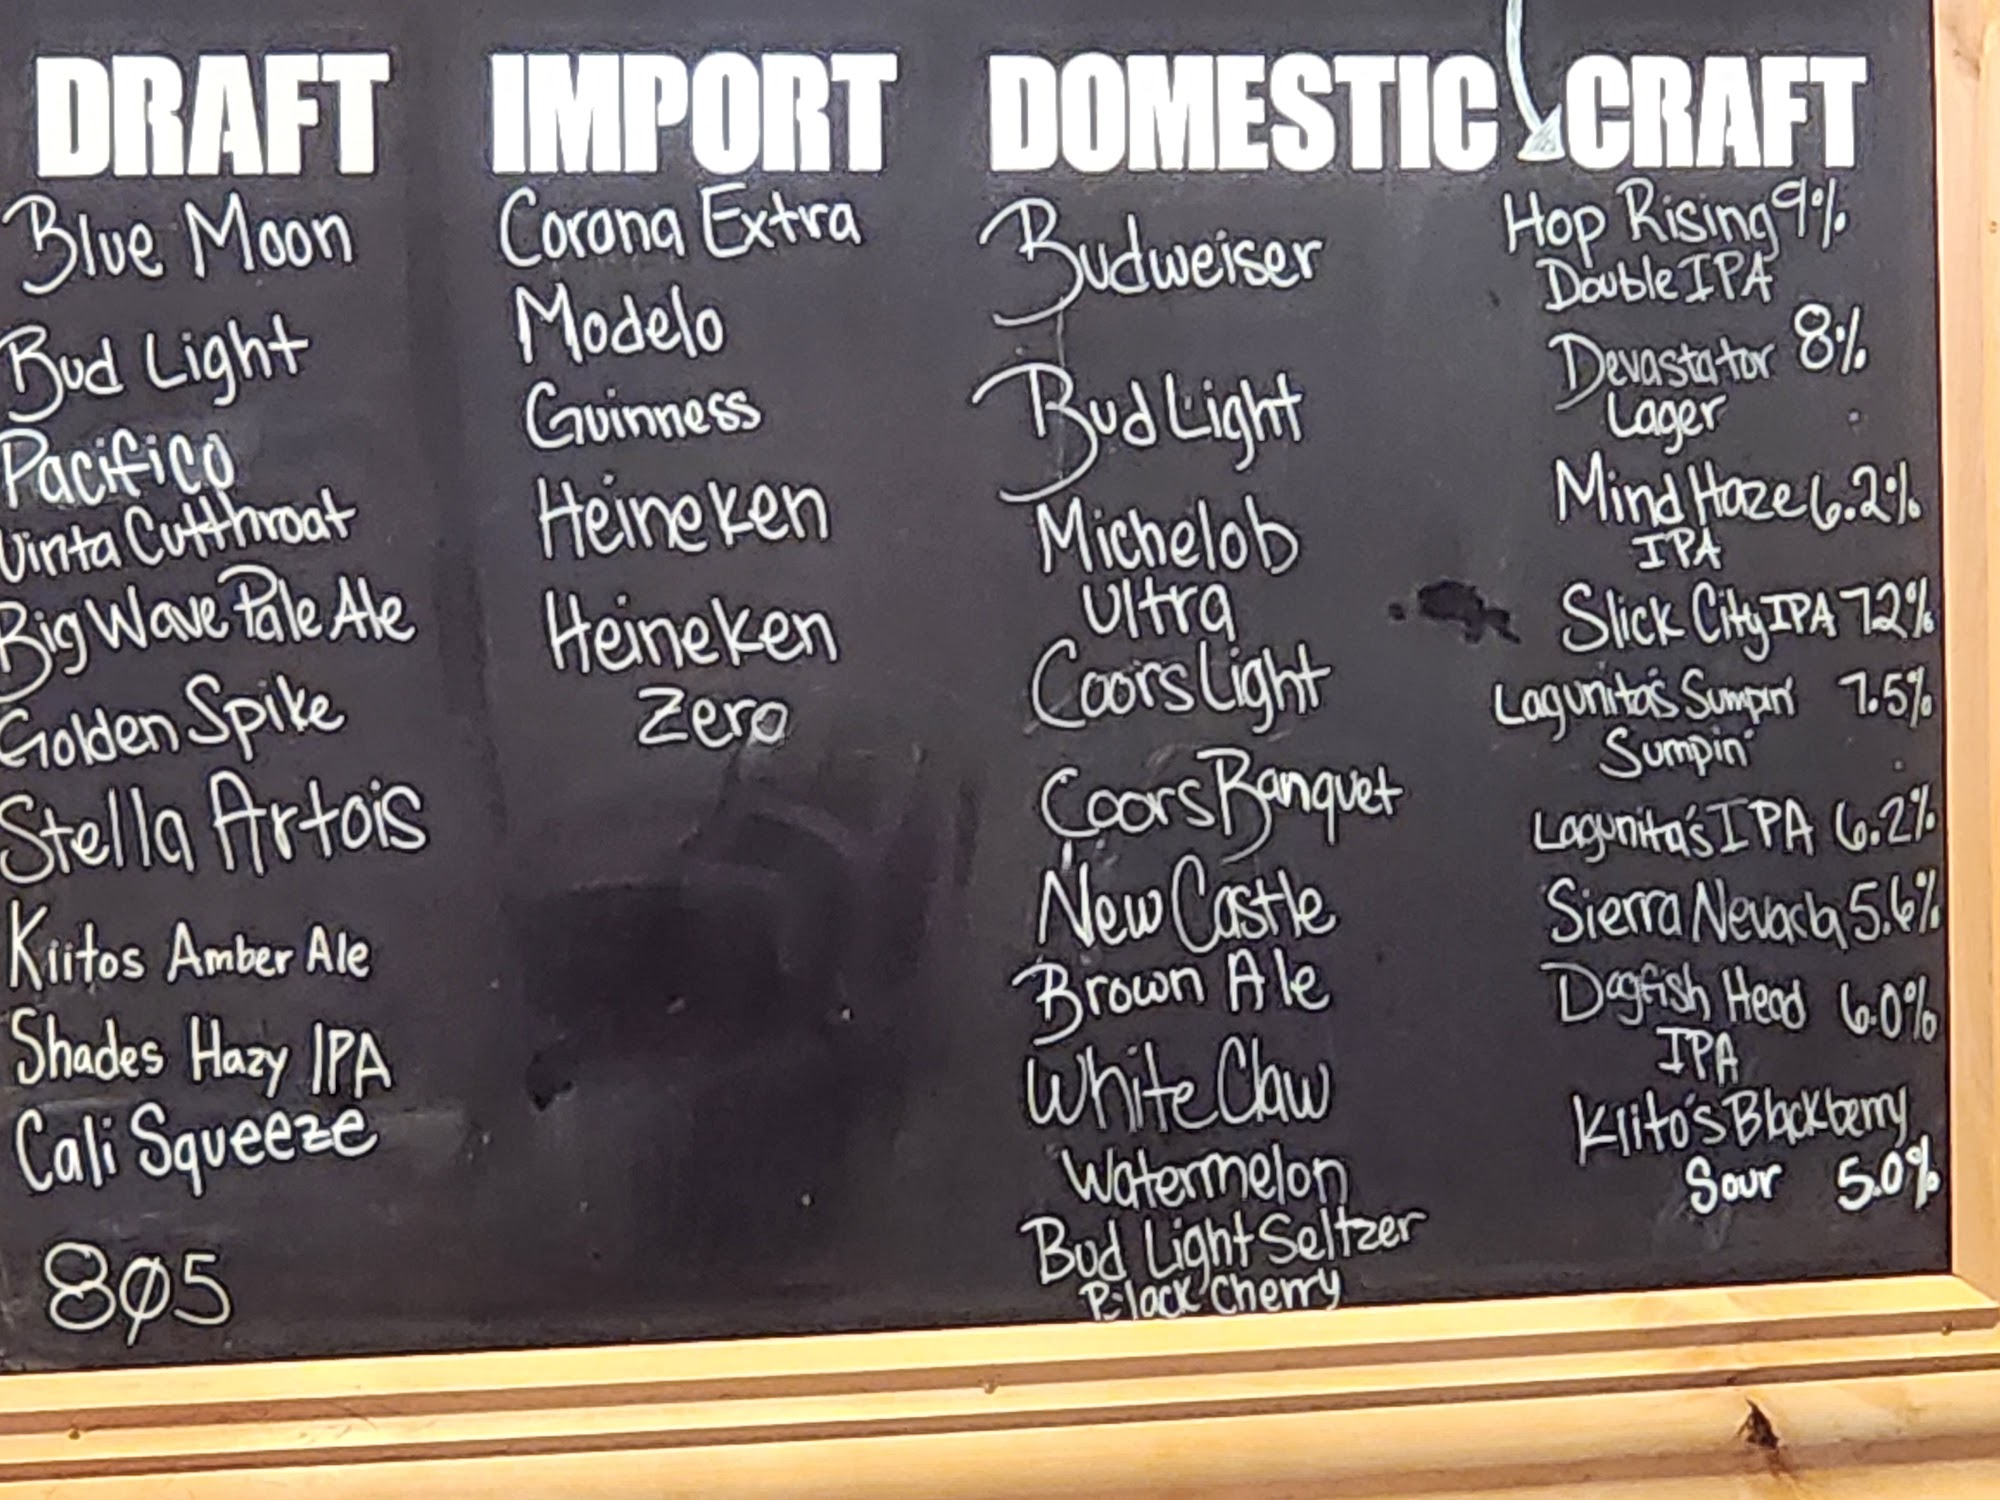 DRAFT
Blue Moon
Bud Light
Pacifico
Uinta Cutthroat
Big Wave Pale Ale
Golden Spike
Stella Artois
Kiitos Amber Ale
Shades Hazy IPA
Cali Squeeze
805
IMPORT
Corona Extra
Modelo
Guinness
Heineken
Heineken
Zero
DOMESTIC
Budweiser
Bud Light
Michelob
Ultra
Coors Light
Coors Banquet
New Castle
Brown Ale
White Claw
Watermelon
Bud Light Seltzer
Black Cherry
CRAFT
Hop Rising 9%
Double IPA
Devastator 8%
Lager
Mind Haze 6.2%
IPA
Slick City IPA 7.2%
Lagunita's Sumpin' 7.5%
Sumpin'
Lagunita's IPA 6.2%
Sierra Nevada 5.6%
Dogfish Head 6.0%
IPA
Kiito's Blackberry
Sour 5.0%